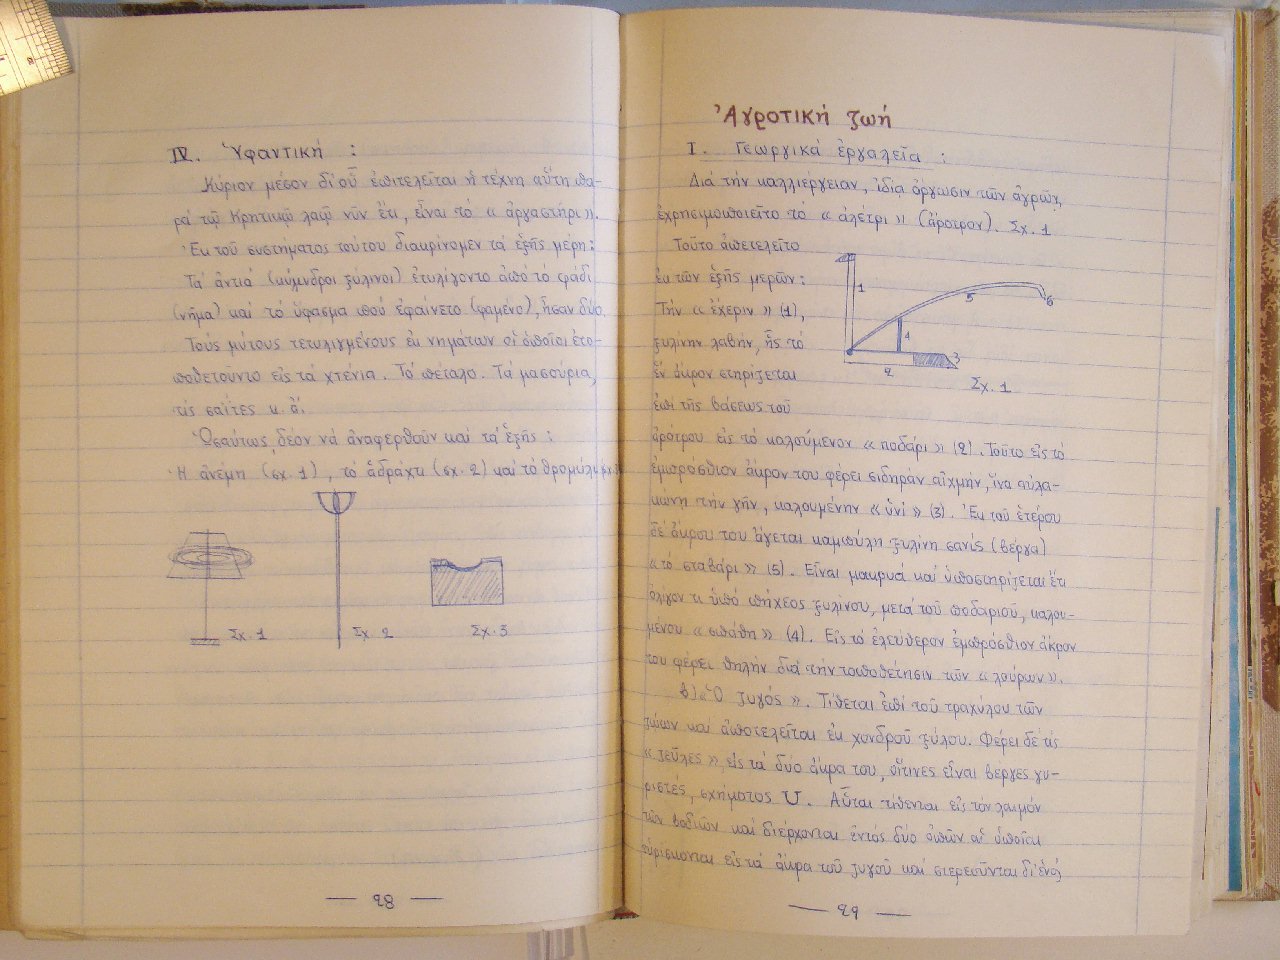 IV. Ὑφαντική :
Κύριον μέσον δι' οὗ ἐπιτελεῖται ἡ τέχνη αὕτη πα-
ρά τῷ Κρητικῷ λαῷ νῦν ἔτι, εἶναι τό « ἀργαστήρι ».
Ἐκ τοῦ συστήματος τούτου διακρίνομεν τά ἑξῆς μέρη :
Τά ἀντιά (κύλινδροι ξύλινοι) ἐτυλίγοντο ἀπό τό φάδι
(νῆμα) καί τό ὕφασμα πού ἐφαίνετο (φαμένο), ἦσαν δύο.
Τούς μύτους τετυλιγμένους ἐκ νημάτων οἱ ὁποῖοι ἐτο-
ποθετοῦντο εἰς τά χτένια. Τό πέταλο. Τά μασούρια,
τις σαΐτες κ. ἄ.
Ὡσαύτως δέον νά ἀναφερθοῦν καί τά ἑξῆς :
Ἡ ἀνέμη (σχ. 1), τό ἀδράχτι (σχ. 2) καί τό θρομύλι
Σχ. 1
Σχ 2
Σχ. 3
— 28 —
Ἀγροτική ζωή
I. Γεωργικά ἐργαλεῖα :
Διά τήν καλλιέργειαν, ἰδίᾳ ὄργωσιν τῶν ἀγρῶν,
ἐχρησιμοποιεῖτο τό « ἀλέτρι » (ἄροτρον). Σχ. 1
Τοῦτο ἀπετελεῖτο
ἐκ τῶν ἑξῆς μερῶν :
Τήν « ἐχέριν » (1),
ξυλίνην λαβήν, ἧς τό
ἕν ἄκρον στηρίζεται
ἐπί τῆς βάσεως τοῦ
1
5
6
4
3
2
Σχ. 1
ἀρότρου εἰς τό καλούμενον « ποδάρι » (2). Τοῦτο εἰς τό
ἐμπρόσθιον ἄκρον του φέρει σιδηράν αἰχμήν, ἵνα αὐλα-
κώνῃ τήν γῆν, καλουμένην « ὑνί » (3). Ἐκ τοῦ ἑτέρου
δέ ἄκρου του ἄγεται καμπύλη ξυλίνη σανίς (βέργα)
« τό σταβάρι » (5). Εἶναι μακρυά καί ὑποστηρίζεται ἔτι
ὀλίγον τι ὑπό πήχεος ξυλίνου, μετά τοῦ ποδαριοῦ, καλου-
μένου « σπάθη » (4). Εἰς τό ἐλεύθερον ἐμπρόσθιον ἄκρον
του φέρει θηλήν διά τήν τοποθέτησιν τῶν « λούρων ».
β) « Ὁ ζυγός ». Τίθεται ἐπί τοῦ τραχύλου τῶν
ζώων καί ἀποτελεῖται ἐκ χονδροῦ ξύλου. Φέρει δέ τίς
« ζεῦλες », εἰς τά δυο ἄκρα του, οἵτινες εἶναι βέργες γυ-
ριστές, σχήματος U. Αὗται τίθενται εἰς τόν λαιμόν
τῶν βοδιῶν καί διέρχονται ἐντός δύο ὀπῶν αἱ ὁποῖαι
εὑρίσκονται εἰς τά ἄκρα τοῦ ζυγοῦ καί στερεοῦνται δι' ἑνός
— 29 —